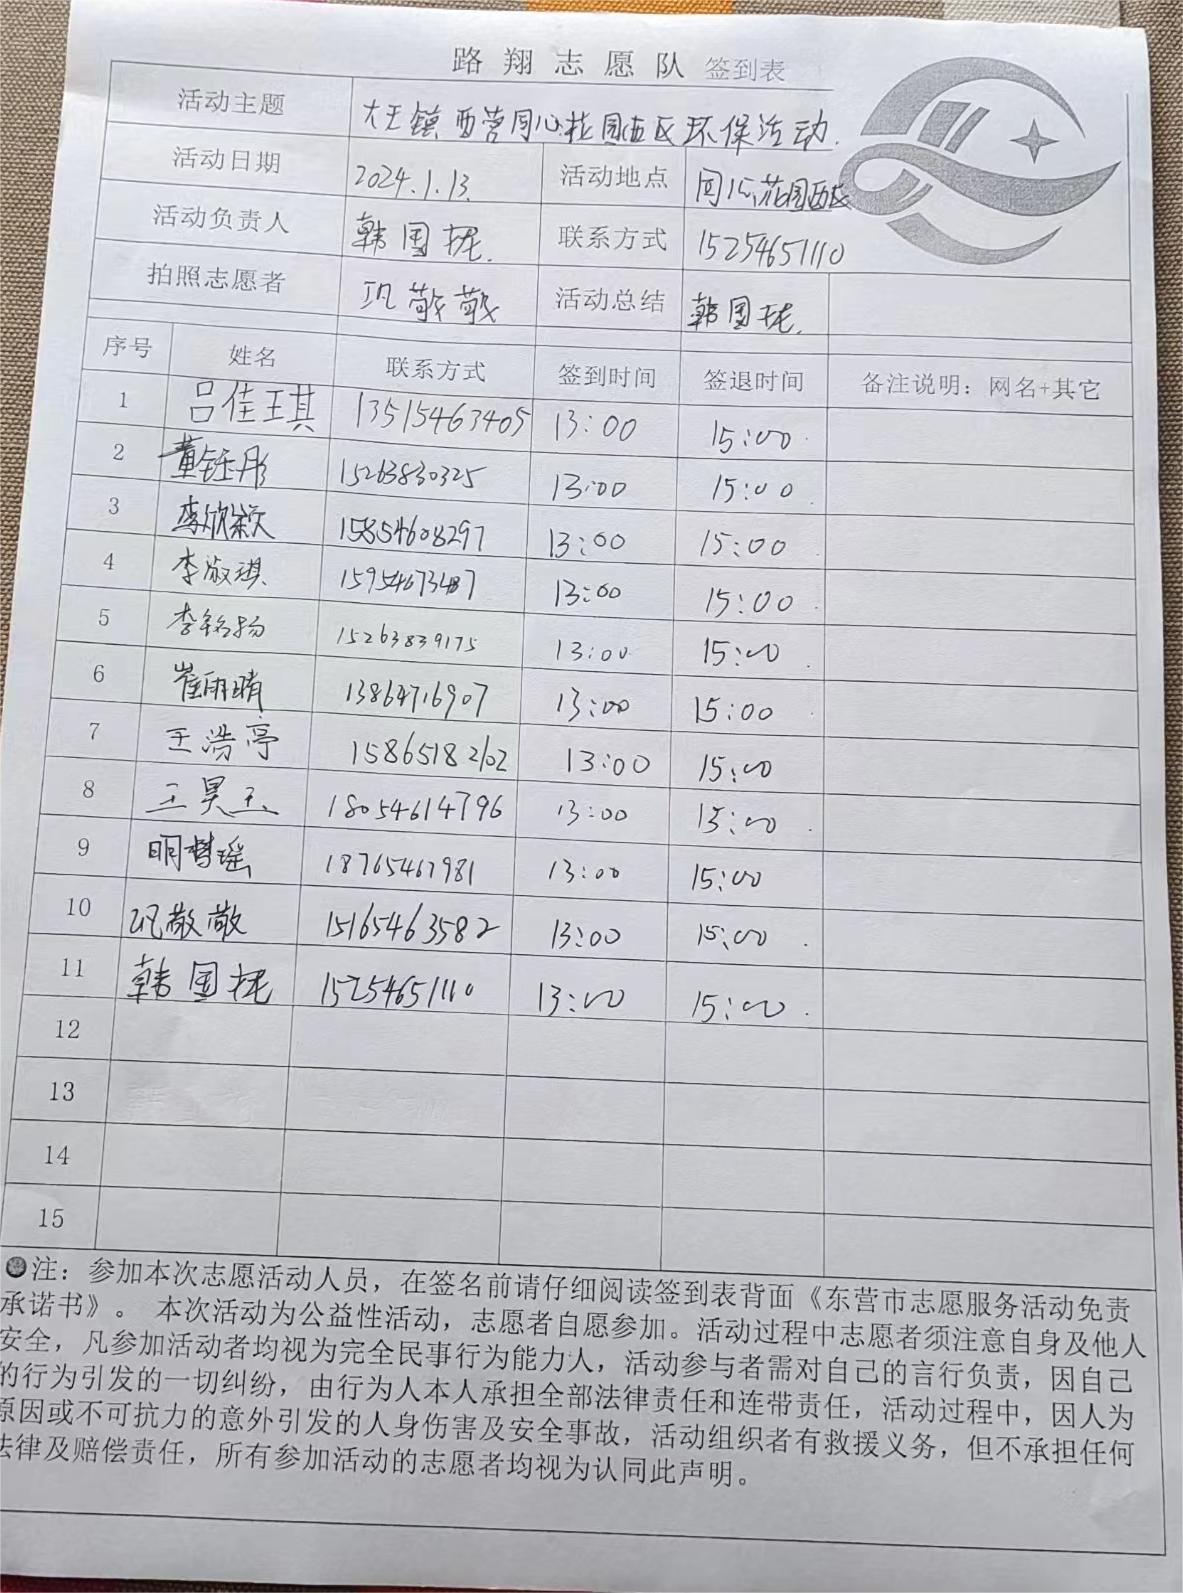 路翔志愿队 签到表
活动主题 大王镇西营同心花园西区环保活动.
活动日期 2024.1.13. 活动地点 同心花园西区
活动负责人 韩国栋. 联系方式 15254651110
拍照志愿者 巩敬敬 活动总结 韩国栋.
序号 姓名 联系方式 签到时间 签退时间 备注说明：网名+其它
1 吕佳琪 13515463405 13:00 15:00
2 董钰彤 15263830325 13:00 15:00
3 李欣颖 15854608297 13:00 15:00
4 李淑琪 15954673487 13:00 15:00
5 李铭扬 15263839175 13:00 15:00
6 崔雨晴 13864716907 13:00 15:00
7 王浩亭 15865182102 13:00 15:00
8 王昊玉 18054614796 13:00 15:00
9 明梦瑶 18765467981 13:00 15:00
10 巩敬敬 15165463582 13:00 15:00
11 韩国栋 15254651110 13:00 15:00
12
13
14
15
注：参加本次志愿活动人员，在签名前请仔细阅读签到表背面《东营市志愿服务活动免责
承诺书》。 本次活动为公益性活动，志愿者自愿参加。活动过程中志愿者须注意自身及他人
安全，凡参加活动者均视为完全民事行为能力人，活动参与者需对自己的言行负责，因自己
的行为引发的一切纠纷，由行为人本人承担全部法律责任和连带责任，活动过程中，因人为
原因或不可抗力的意外引发的人身伤害及安全事故，活动组织者有救援义务，但不承担任何
法律及赔偿责任，所有参加活动的志愿者均视为认同此声明。